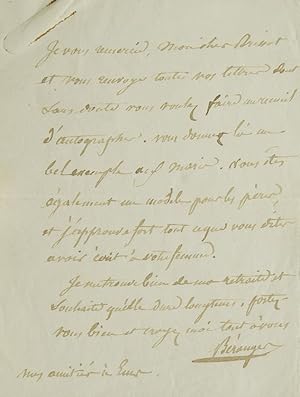 Je vous remercie, Mon cher Brivot
et vous renvoye toutes vos lettres dont
sans doute vous voulez faire un recueil
d'autographes. vous donnez là un
bel exemple aux maris. Vous êtes
également un modèle pour les pères,
et j'approuve fort tout ce que vous dites
avoir écrit à votre femme.
Je me trouve bien de ma retraite et
souhaite qu'elle dure longtems. portez
vous bien et croyez moi tout à vous
Béranger
mes amitiés à